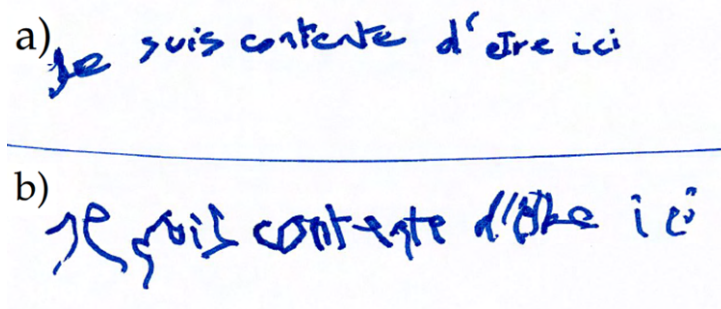 a) Je suis contente d'etre ici
b) Je suis contente d'être ici